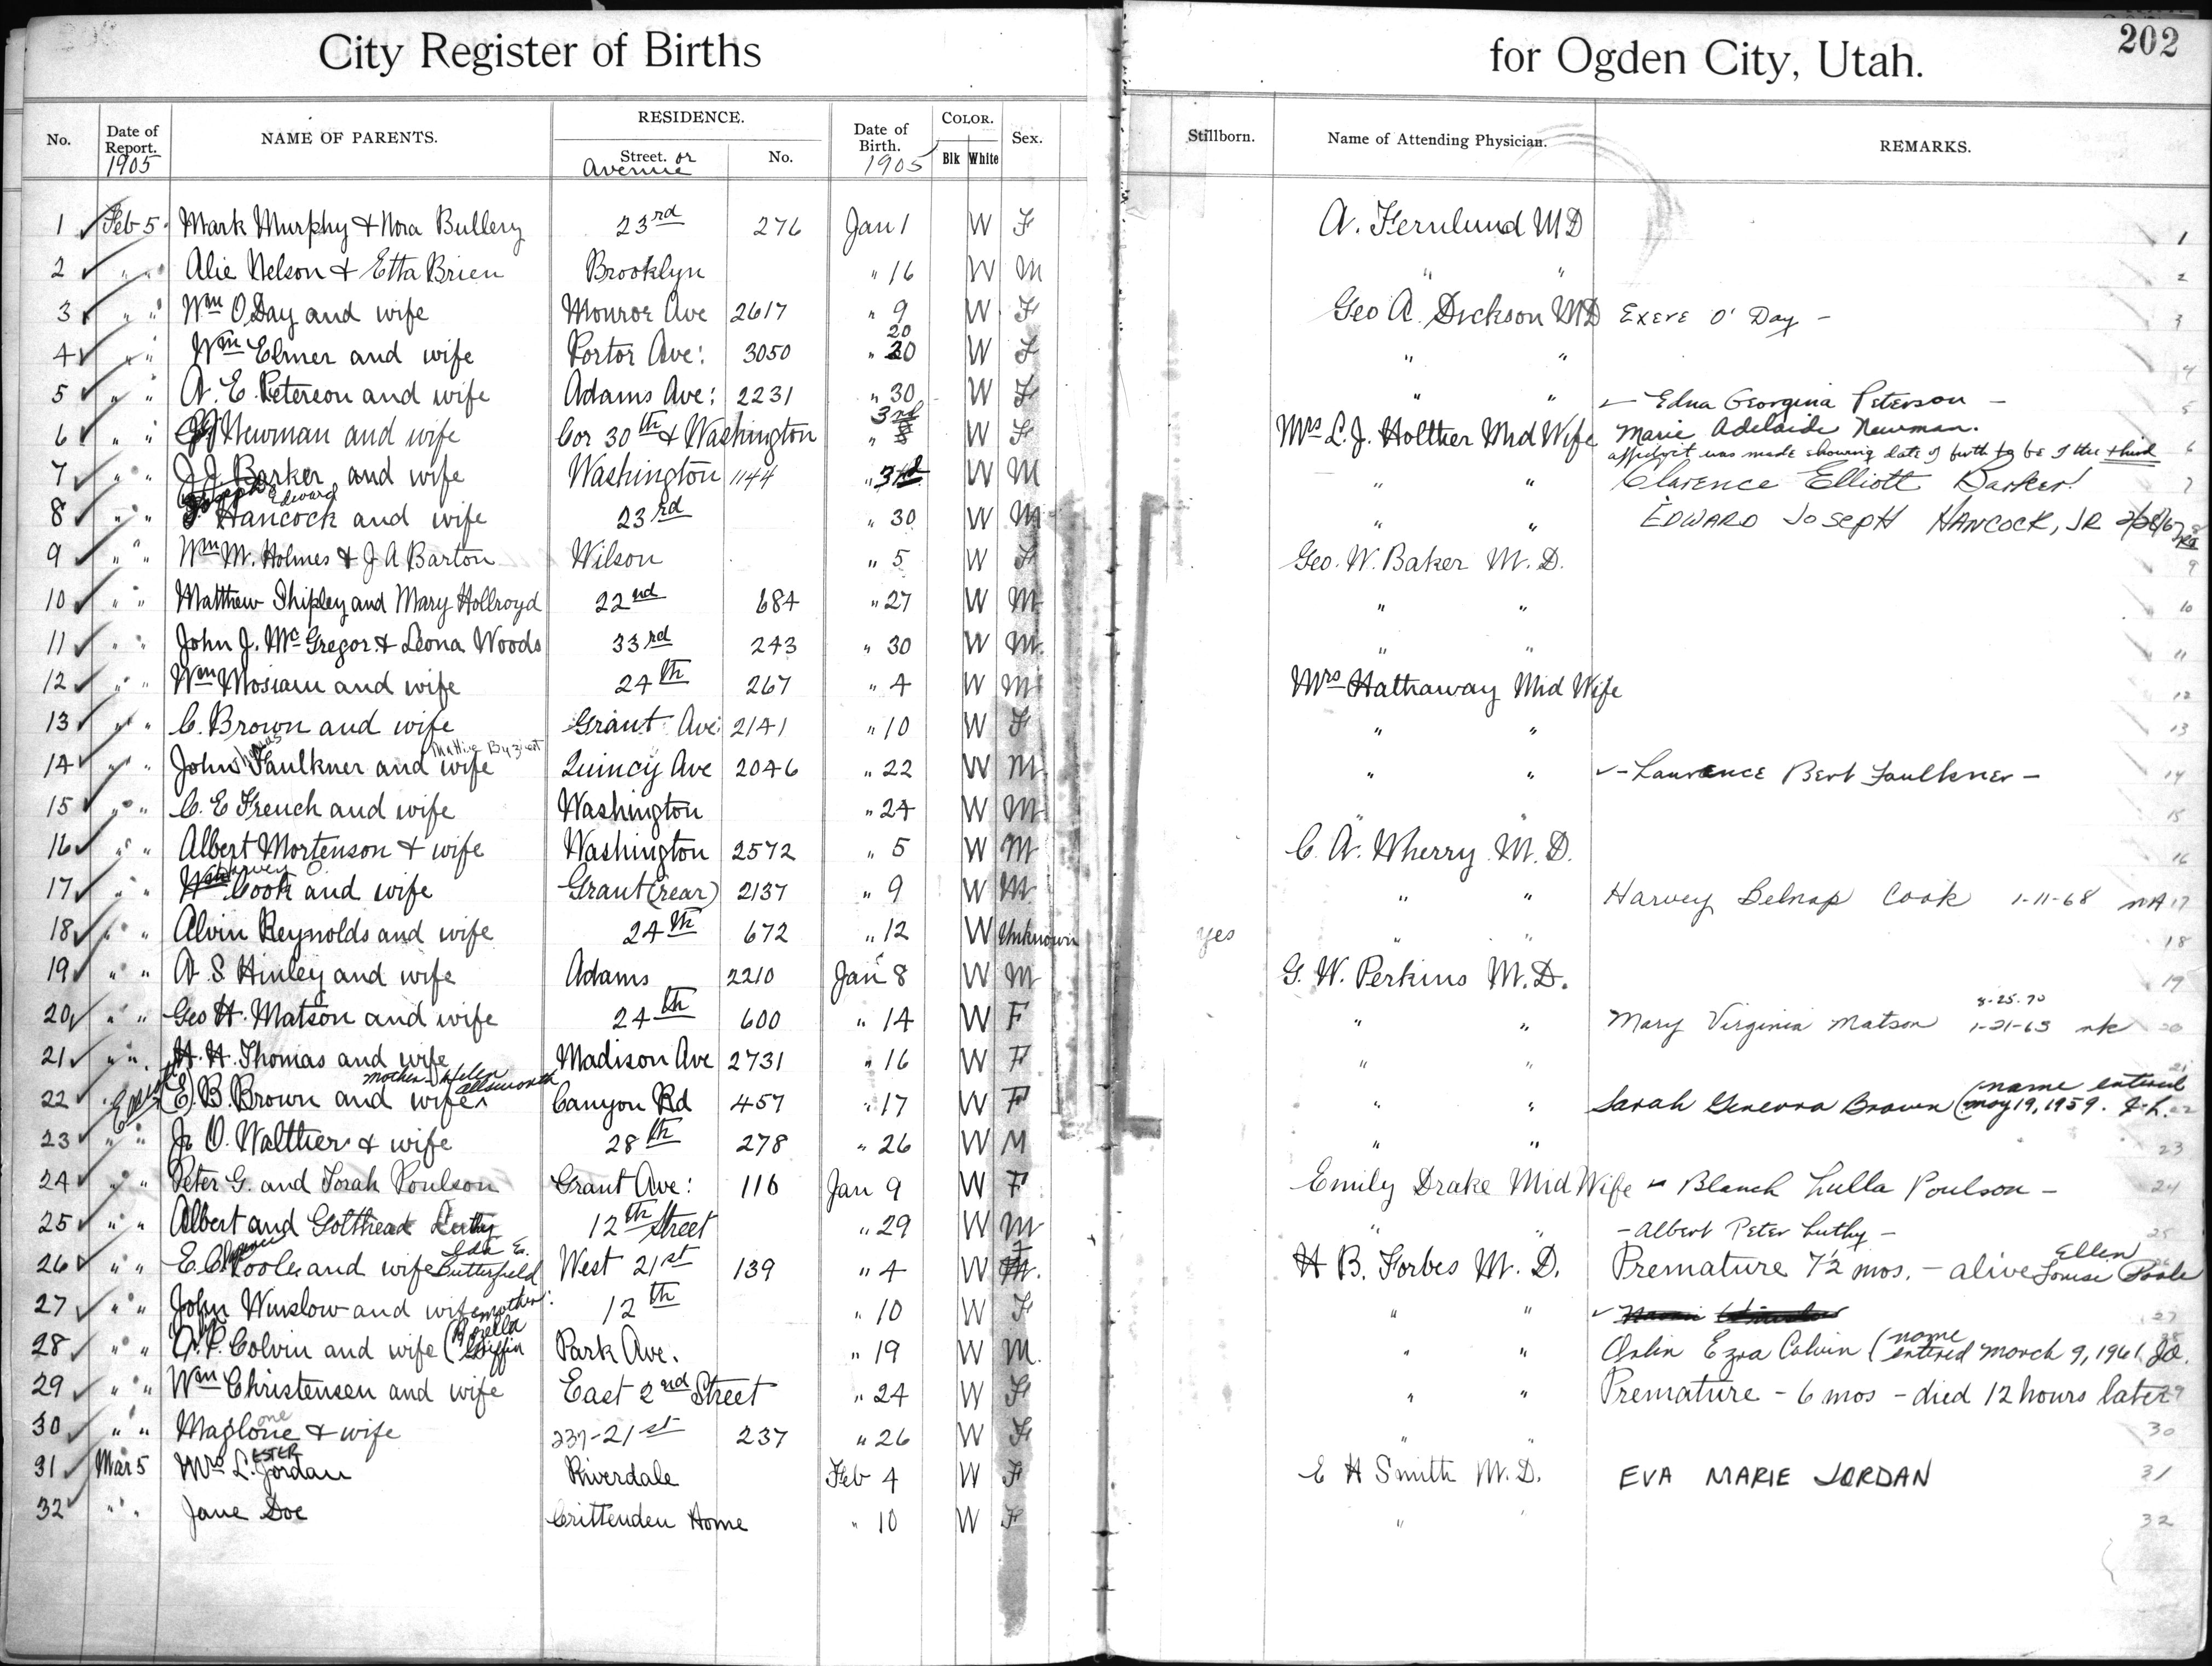 City Register of Births for Ogden City, Utah. 202
No. Date of Report. 1905 NAME OF PARENTS. RESIDENCE. Street. or Avenue No. Date of Birth. 1905 COLOR. Blk White Sex. Stillborn. Name of Attending Physician. REMARKS.
1 Feb 5 Mark Murphy & Nora Bullery 23rd 276 Jan 1 W F A. Fernlund MD 1
2 " " Alie Nelson & Etta Brien Brooklyn " 16 W M " " 2
3 " " Wm O'Day and wife Monroe Ave 2617 " 9 W F Geo A. Dickson MD Exere O'Day - 3
4 " " Wm Elmer and wife Portor Ave: 3050 " 20 20 W F " " 4
5 " " A. E. Peterson and wife Adams Ave: 2231 " 30 W F " " Edna Georgina Peterson - 5
6 " " Newman and wife Cor 30th & Washington " 3rd W F Mrs L. J. Holther Mid Wife Marie Adelaide Newman. 6
affidavit was made showing date of birth to be of the third
7 " " J. J. Barker and wife Washington 1144 " 31d W M " " Clarence Elliott Barker 7
8 " " Joseph Edward Hancock and wife 23rd " 30 W M " " EDWARD JOSEPH HANCOCK, JR 8
9 " " Wm M. Holmes & J A Barton Wilson " 5 W F Geo. W. Baker M. D. 9
10 " " Matthew Shipley and Mary Hollroyd 22nd 684 " 27 W M " " 10
11 " " John J. McGregor & Leona Woods 33rd 243 " 30 W M. " " 11
12 " " Wm Mosiam and wife 24th 267 " 4 W M Mrs Hathaway Mid Wife 12
13 " " C. Brown and wife Grant Ave 2141 " 10 W F " " 13
14 " " John Faulkner and wife Quincy Ave 2046 " 22 W M " " - Laurence Bert Faulkner - 14
15 " " C. E French and wife Washington " 24 W M " " 15
16 " " Albert Mortenson & wife Washington 2572 " 5 W M C. A. Wherry M. D. 16
17 " " Cook and wife Grant (rear) 2137 " 9 W M " " Harvey Belnap Cook 1-11-68 17
18 " " Alvin Reynolds and wife 24th 672 " 12 W Unknown yes " " 18
19 " " A. S. Hinley and wife Adams 2210 Jan 8 W M G. W. Perkins M. D. 19
20 " " Geo H. Matson and wife 24th 600 " 14 W F " " Mary Virginia Matson 8-25-70 1-21-63 nk 20
21 " " H. H. Thomas and wife Madison Ave 2731 " 16 W F " " 21
22 E. B. Brown and wife mother - Helen Allsworth Canyon Rd 457 " 17 W F " " Sarah Genevra Brown (name entered may 19, 1959. 22
23 " " J. O. Walther & wife 28th 278 " 26 W M " " 23
24 " " Peter G. and Torah Poulson Grant Ave: 116 Jan 9 W F Emily Drake Mid Wife Blanch Lulla Poulson - 24
25 " " Albert and Gotthead 12th Street " 29 W M " " - Albert Peter Luthy - 25
26 " " E. C. Poole and wife Ida E. Butterfield West 21st 139 " 4 W F H B. Forbes M. D. Premature 7½ mos. - alive Ellen Louise Poole 26
27 " " John Winslow and wife 12th " 10 W F " " 27
28 " " A. P. Colvin and wife (mother: Rozella Griffin Park Ave. " 19 W M. " " Orlin Ezra Colvin (name entered March 9, 1961. 28
29 " " Wm Christensen and wife East 2nd Street " 24 W F " " Premature - 6 mos - died 12 hours later 29
30 " " Maglone & wife 237-21st 237 " 26 W F " " 30
31 Mar 5 Mrs L. ESTER Jordan Riverdale Feb 4 W F E H Smith M. D. EVA MARIE JORDAN 31
32 " " Jane Doe Crittenden Home " 10 W F " " 32